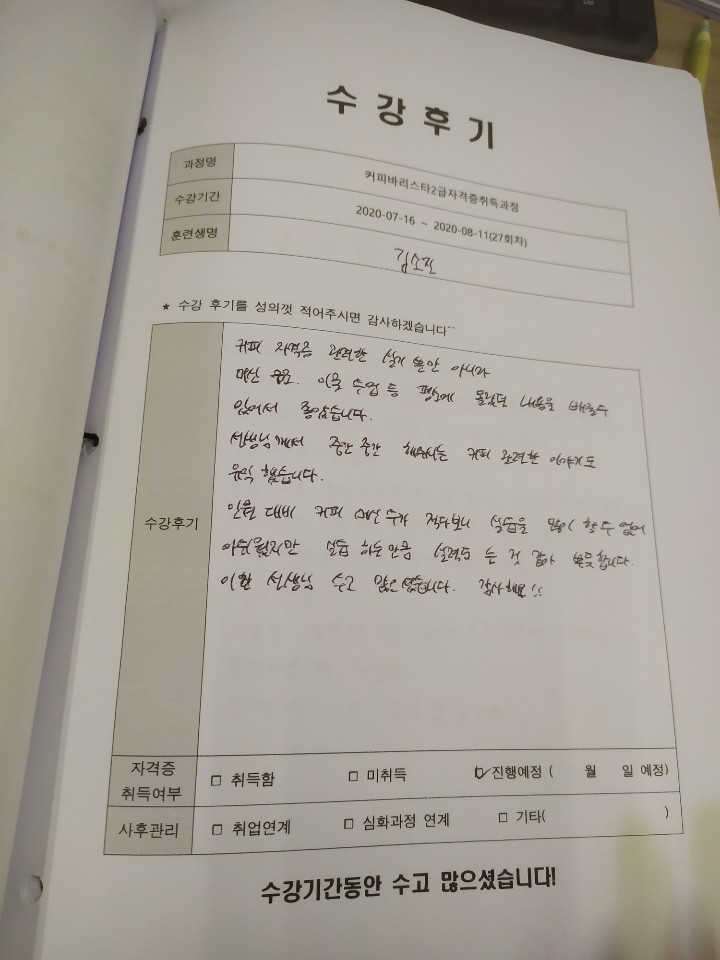 수강후기
과정명 커피바리스타2급자격증취득과정
수강기간 2020-07-16 ~ 2020-08-11(27회차)
훈련생명 김소진
★ 수강 후기를 성의껏 적어주시면 감사하겠습니다^^
수강후기
커피 자격증 관련한 실기 뿐만 아니라
머신 구조, 이론 수업 등 평소에 몰랐던 내용을 배울수
있어서 좋았습니다.
선생님께서 중간중간 해주시는 커피 관련한 이야기도
유익했습니다.
인원 대비 커피 머신 수가 적다보니 실습을 많이 할 수 없어
아쉬웠지만 실습 하는만큼 실력도 는 것 같아 뿌듯합니다.
선생님 수고 많으셨습니다. 감사해요!!
자격증
취득여부 □ 취득함 □ 미취득 ☑ 진행예정 ( 월 일 예정)
사후관리 □ 취업연계 □ 심화과정 연계 □ 기타( )
수강기간동안 수고 많으셨습니다!